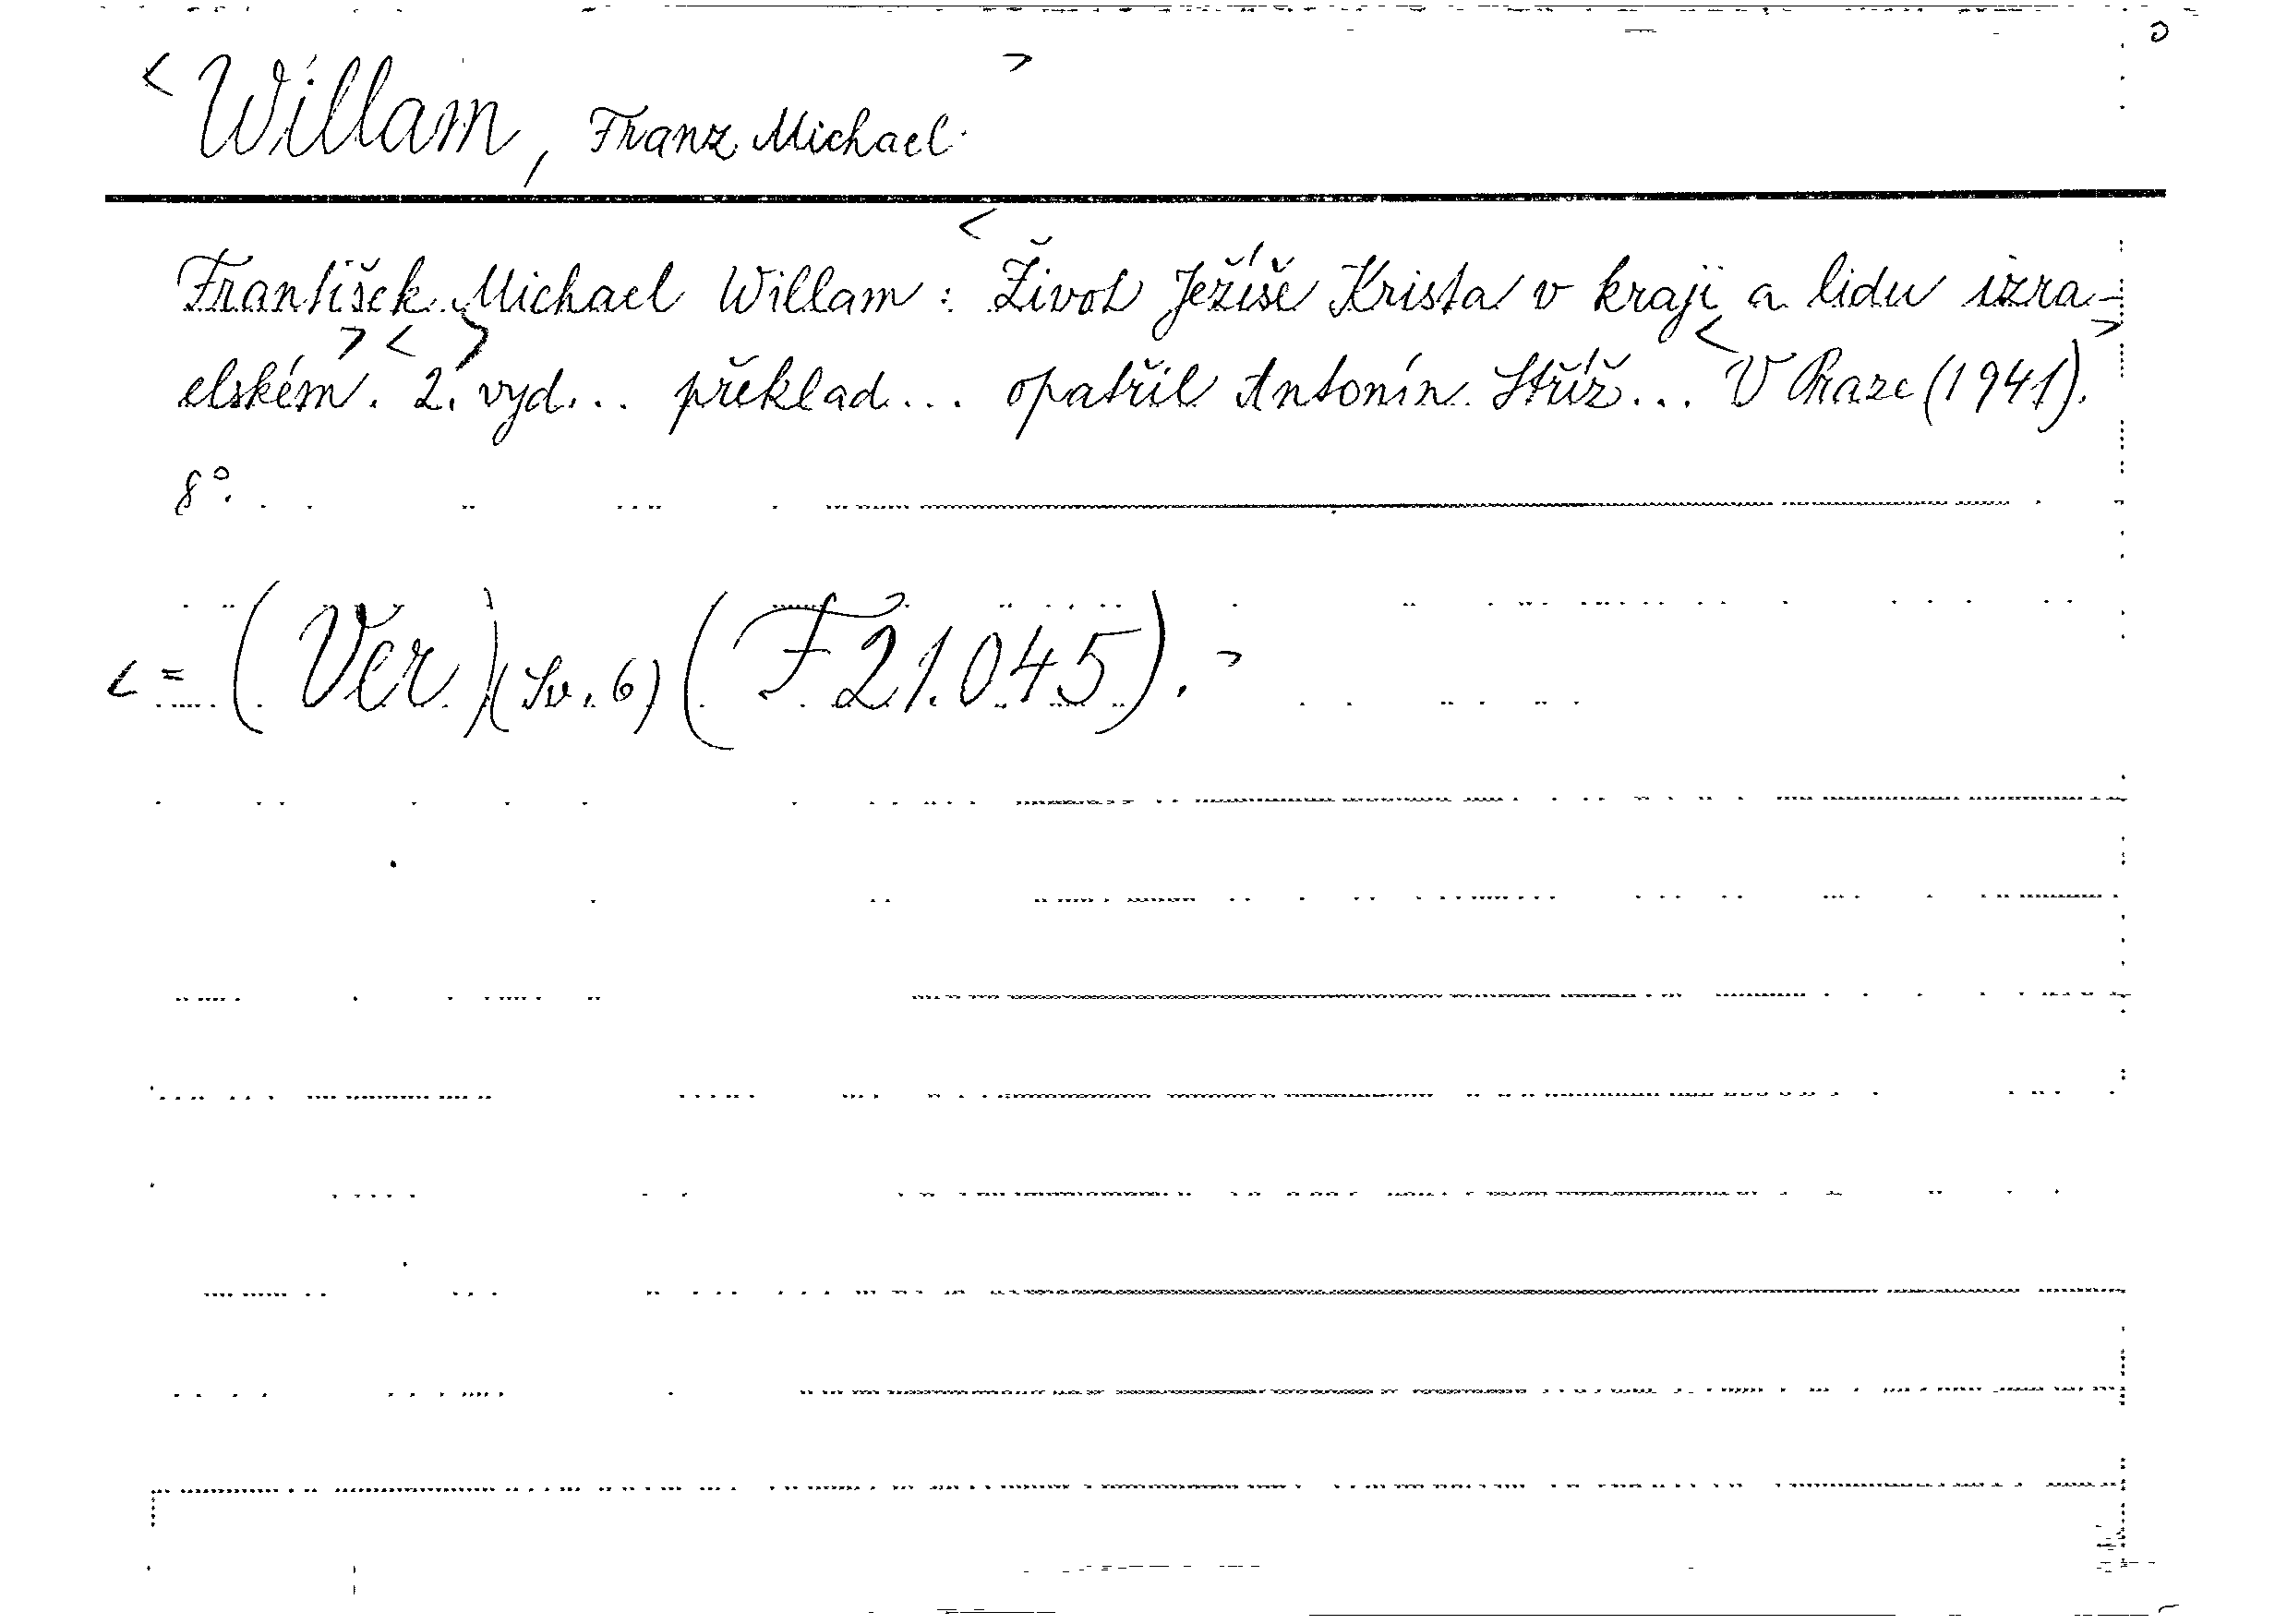 <Willam, Franz Michael>
František Michael Willam: <Život Ježíše Krista v kraji a lidu izra-
elském>. <2.> vyd... překlad... opatřil Antonín Stříž... <V Praze (1941).>
8°.
<=(Ver)(Sv. 6)(F 21.045).>